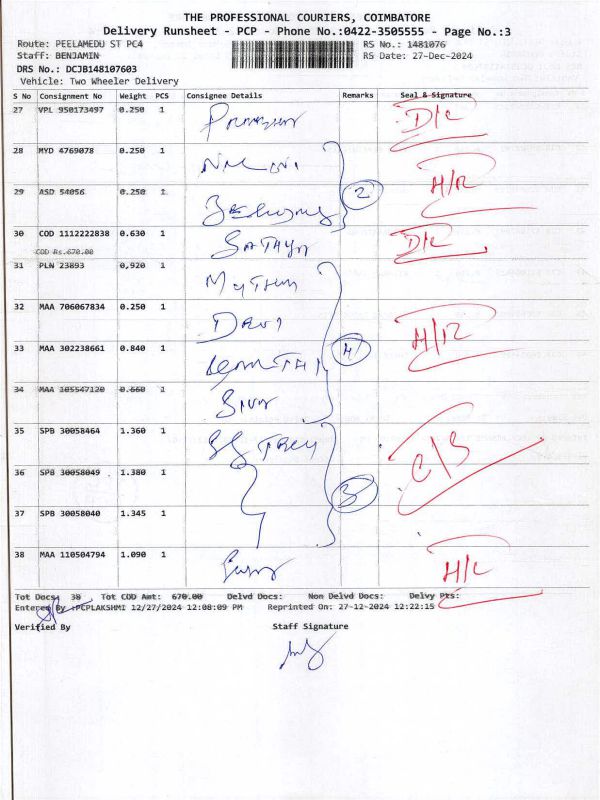 THE PROFESSIONAL COURIERS, COIMBATORE
Delivery Runsheet - PCP - Phone No.:0422-3505555 - Page No.:3
Route: PEELAMEDU ST PC4 RS No.: 1481076
Staff: BENJAMIN RS Date: 27-Dec-2024
DRS No.: DCJB148107603
Vehicle: Two Wheeler Delivery
S No Consignment No Weight PCS Consignee Details Remarks Seal & Signature
27 VPL 950173497 0.250 1 D/R
28 MYD 4769078 0.250 1
29 ASD 54056 0.250 1 2 H/R
30 COD 1112222838 0.630 1 SATHYA D/R
COD Rs.670.00
31 PLN 23893 0,920 1 Mythun
32 MAA 706067834 0.250 1 Devi
33 MAA 302238661 0.840 1 4 H/R
34 MAA 305547120 0.660 1 Siva
35 SPB 30058464 1.360 1
36 SPB 30058049 1.380 1 3 C/S
37 SPB 30058040 1.345 1
38 MAA 110504794 1.090 1 H/L
Tot Docs: 38 Tot COD Amt: 670.00 Delvd Docs: Non Delvd Docs: Delvy Pts:
Entered By :PCPLAKSHMI 12/27/2024 12:08:09 PM Reprinted On: 27-12-2024 12:22:15
Verified By Staff Signature